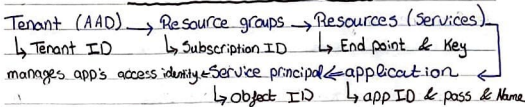 Tenant (AAD) → Resource groups → Resources (Services)
↳ Tenant ID ↳ Subscription ID ↳ End point & Key
manages app's access identity ← Service principal ← application ←
↳ object ID ↳ app ID & pass & Name